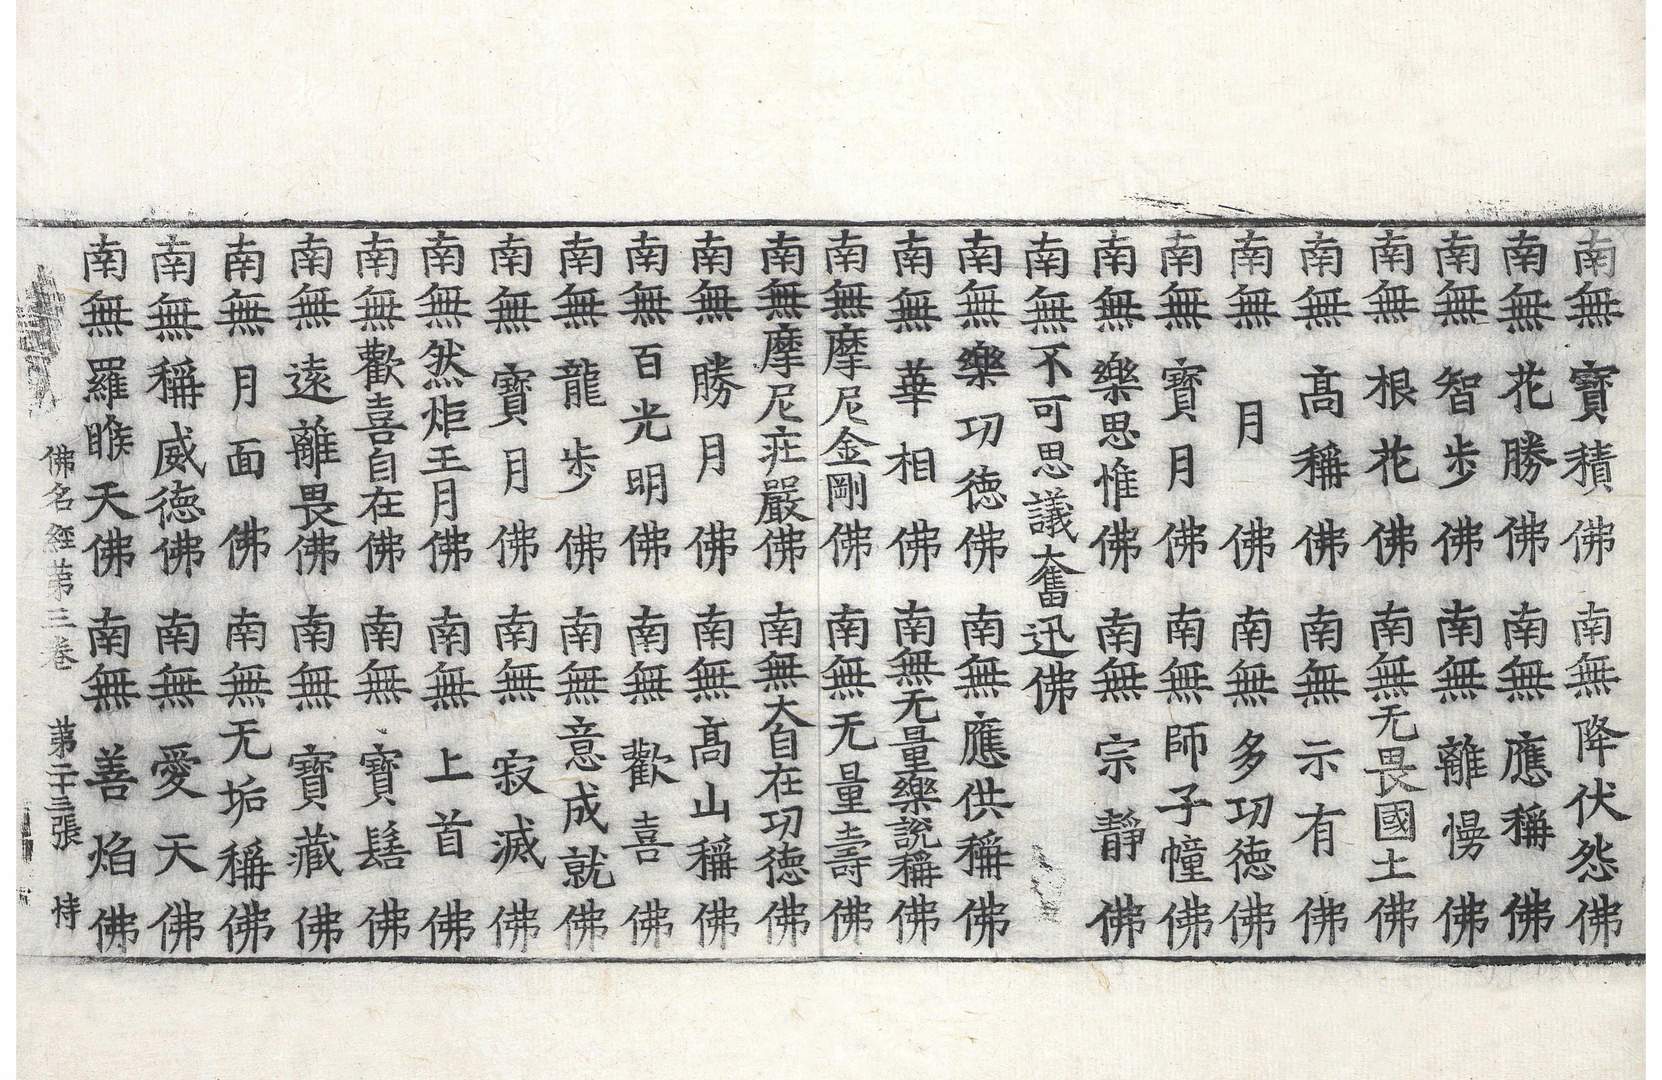 南無寶積佛 南無降伏怨佛
南無花勝佛 南無應稱佛
南無智步佛 南無離慢佛
南無根花佛 南無无畏國土佛
南無髙稱佛 南無示有佛
南無月佛 南無多功德佛
南無寶月佛 南無師子幢佛
南無樂思惟佛 南無宗靜佛
南無不可思議奮迅佛
南無樂功德佛 南無應供稱佛
南無華相佛 南無无量樂說稱佛
南無摩尼金剛佛 南無无量壽佛
南無摩尼疘嚴佛 南無大自在功德佛
南無勝月佛 南無髙山稱佛
南無百光明佛 南無歡喜佛
南無龍步佛 南無意成就佛
南無寶月佛 南無寂滅佛
南無然炬王月佛 南無上首佛
南無歡喜自在佛 南無寶髻佛
南無遠離畏佛 南無寶藏佛
南無月面佛 南無无垢稱佛
南無稱威德佛 南無愛天佛
南無羅睺天佛 南無善焰佛
佛名經第三卷 第二十三張 恃